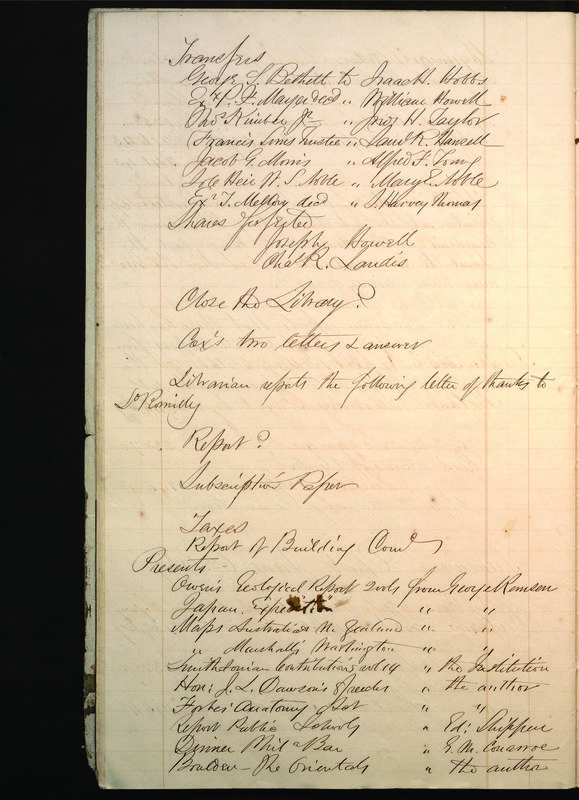 Transfers
George S. Bethell to Isaac H. Hobbs
Exr P. F. Mayer decd " William Howell
Thos Kimber Jr " H. Taylor
Francis Sims Trustee " Saml R. Hansell
Jacob G. Morris " Alfred F. Young
Sole Heir W. S. Noble " Mary E. Noble
Exr T. Mellory decd " J. Harvey Thomas
Shares forfeited
Joseph Howell
Chas R. Landis
Close the Library?
Cox's two letters & answer
Librarian reports the following letter of thanks to
Romilly
Report?
Subscription Paper
Taxes
Report of Building Come
Presents
Owen's Geological Report 2 vols from George Remsen
Japan Expedition " "
Maps Australia N. Zealand " "
" Marshall's Washington " "
Smithsonian Contributions vol 14 " the Institution
Hon: J. L. Dawson's Speeches " the author
Forbes' Anatomy " "
Report Public Schools " Ed: Shippen
Dinner Phil: Bar " G. M. Conarroe
Boulden - The Orientals " the author